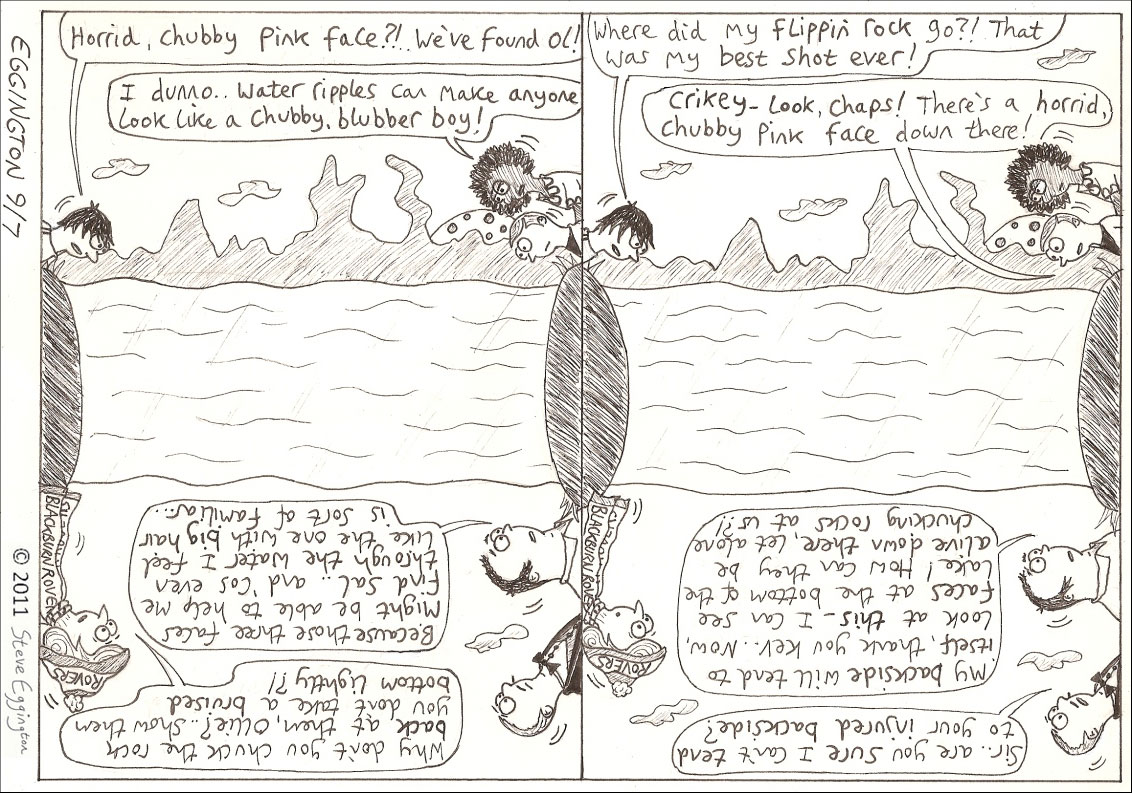 Horrid, chubby pink face?!. We've found Ol!
I dunno.. Water ripples can make anyone
look like a chubby, blubber boy!
Where did my flippin' rock go?! That
was my best shot ever!
Crikey- look, chaps! There's a horrid,
chubby pink face down there!
Sir.. are you sure I can't tend
to your injured backside?
My backside will tend to
itself, thank you Kev.. Now,
look at this - I can see
faces at the bottom of the
lake! How can they be
alive down there, let alone
chucking rocks at us?!
BLACKBURN ROVERS
ROVERS
Why don't you chuck the rock
back at them, Ollie?.. Show them
you dont take a bruised
bottom lightly?!
Because those three faces
might be able to help me
find Sal.. and 'cos even
through the water I feel
like the one with big hair
is sort of familiar...
BLACKBURN ROVERS
ROVERS
EGGINGTON 9/7
© 2011 Steve Eggington